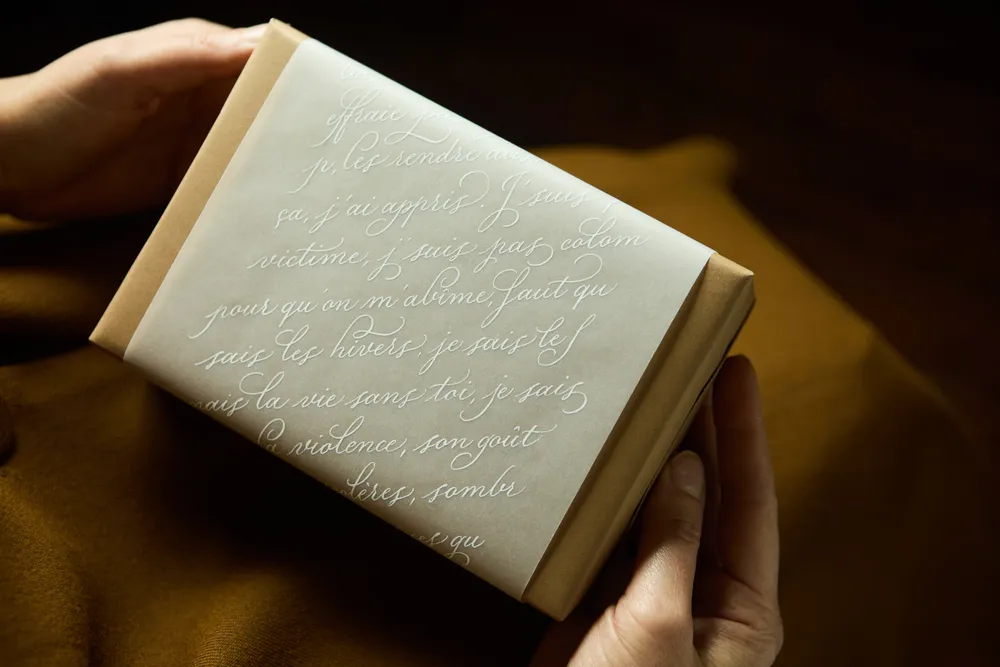 effraie
p, les rendre au
ça, j'ai appris. J'suis p
victime, j'suis pas colom
pour qu'on m'abîme, faut qu
sais les hivers, je sais le f
ais la vie sans toi, je sais
la violence, son goût
lères, sombr
es qu